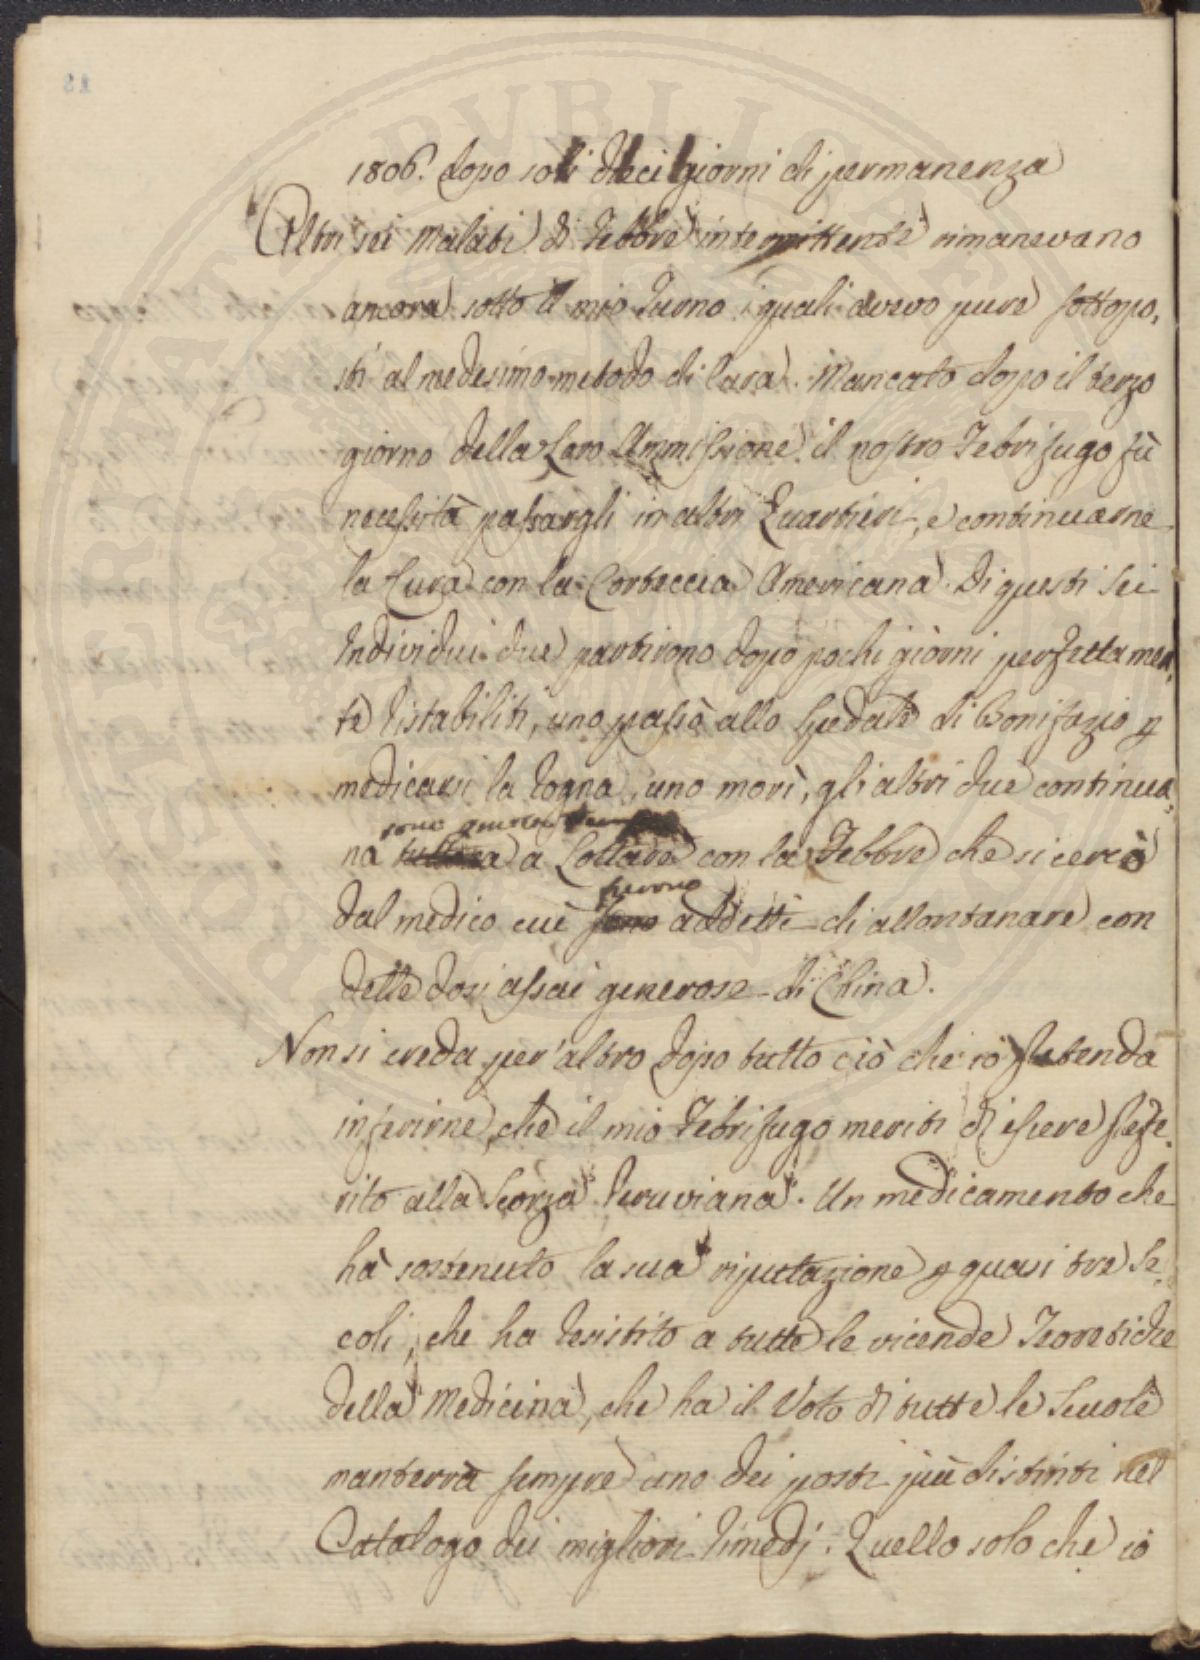 1806. dopo soli dieci giorni di permanenza
Altri sei Malati di Febbre intermittente rimanevano
ancora sotto il mio Turno i quali avevo pure sottopo,
sti al medesimo metodo di Cura. Mancato dopo il terzo
giorno della Loro Ammissione il nostro Febrifugo fù
necessità passargli in altri Quartieri, e continuarne
la Cura con la Corteccia Americana. Di questi sei
Individui due partirono dopo pochi giorni perfettamen,
te ristabiliti, uno passò allo Spedale di Bonifazio p
medicarsi la Rogna, uno morì, gli altri due continua,
sono ancora
na tuttora a Lottare con la Febbre che si cercò
furono
dal medico cui sono addetti di allontanare con
delle dosi assai generose di China.
Non si creda per altro dopo tutto ciò che io pretenda
inferirne, che il mio Febrifugo meriti di essere prefe,
rito alla Scorza Peruviana. Un medicamento che
hà sostenuto la sua riputazione p quasi tre Se,
coli, che ha resistito a tutte le vicende Teoretiche
della Medicina, che ha il Voto di tutte le Scuole
manterrà sempre uno dei posti più distinti nel
Catalogo dei migliori rimedj. Quello solo che io